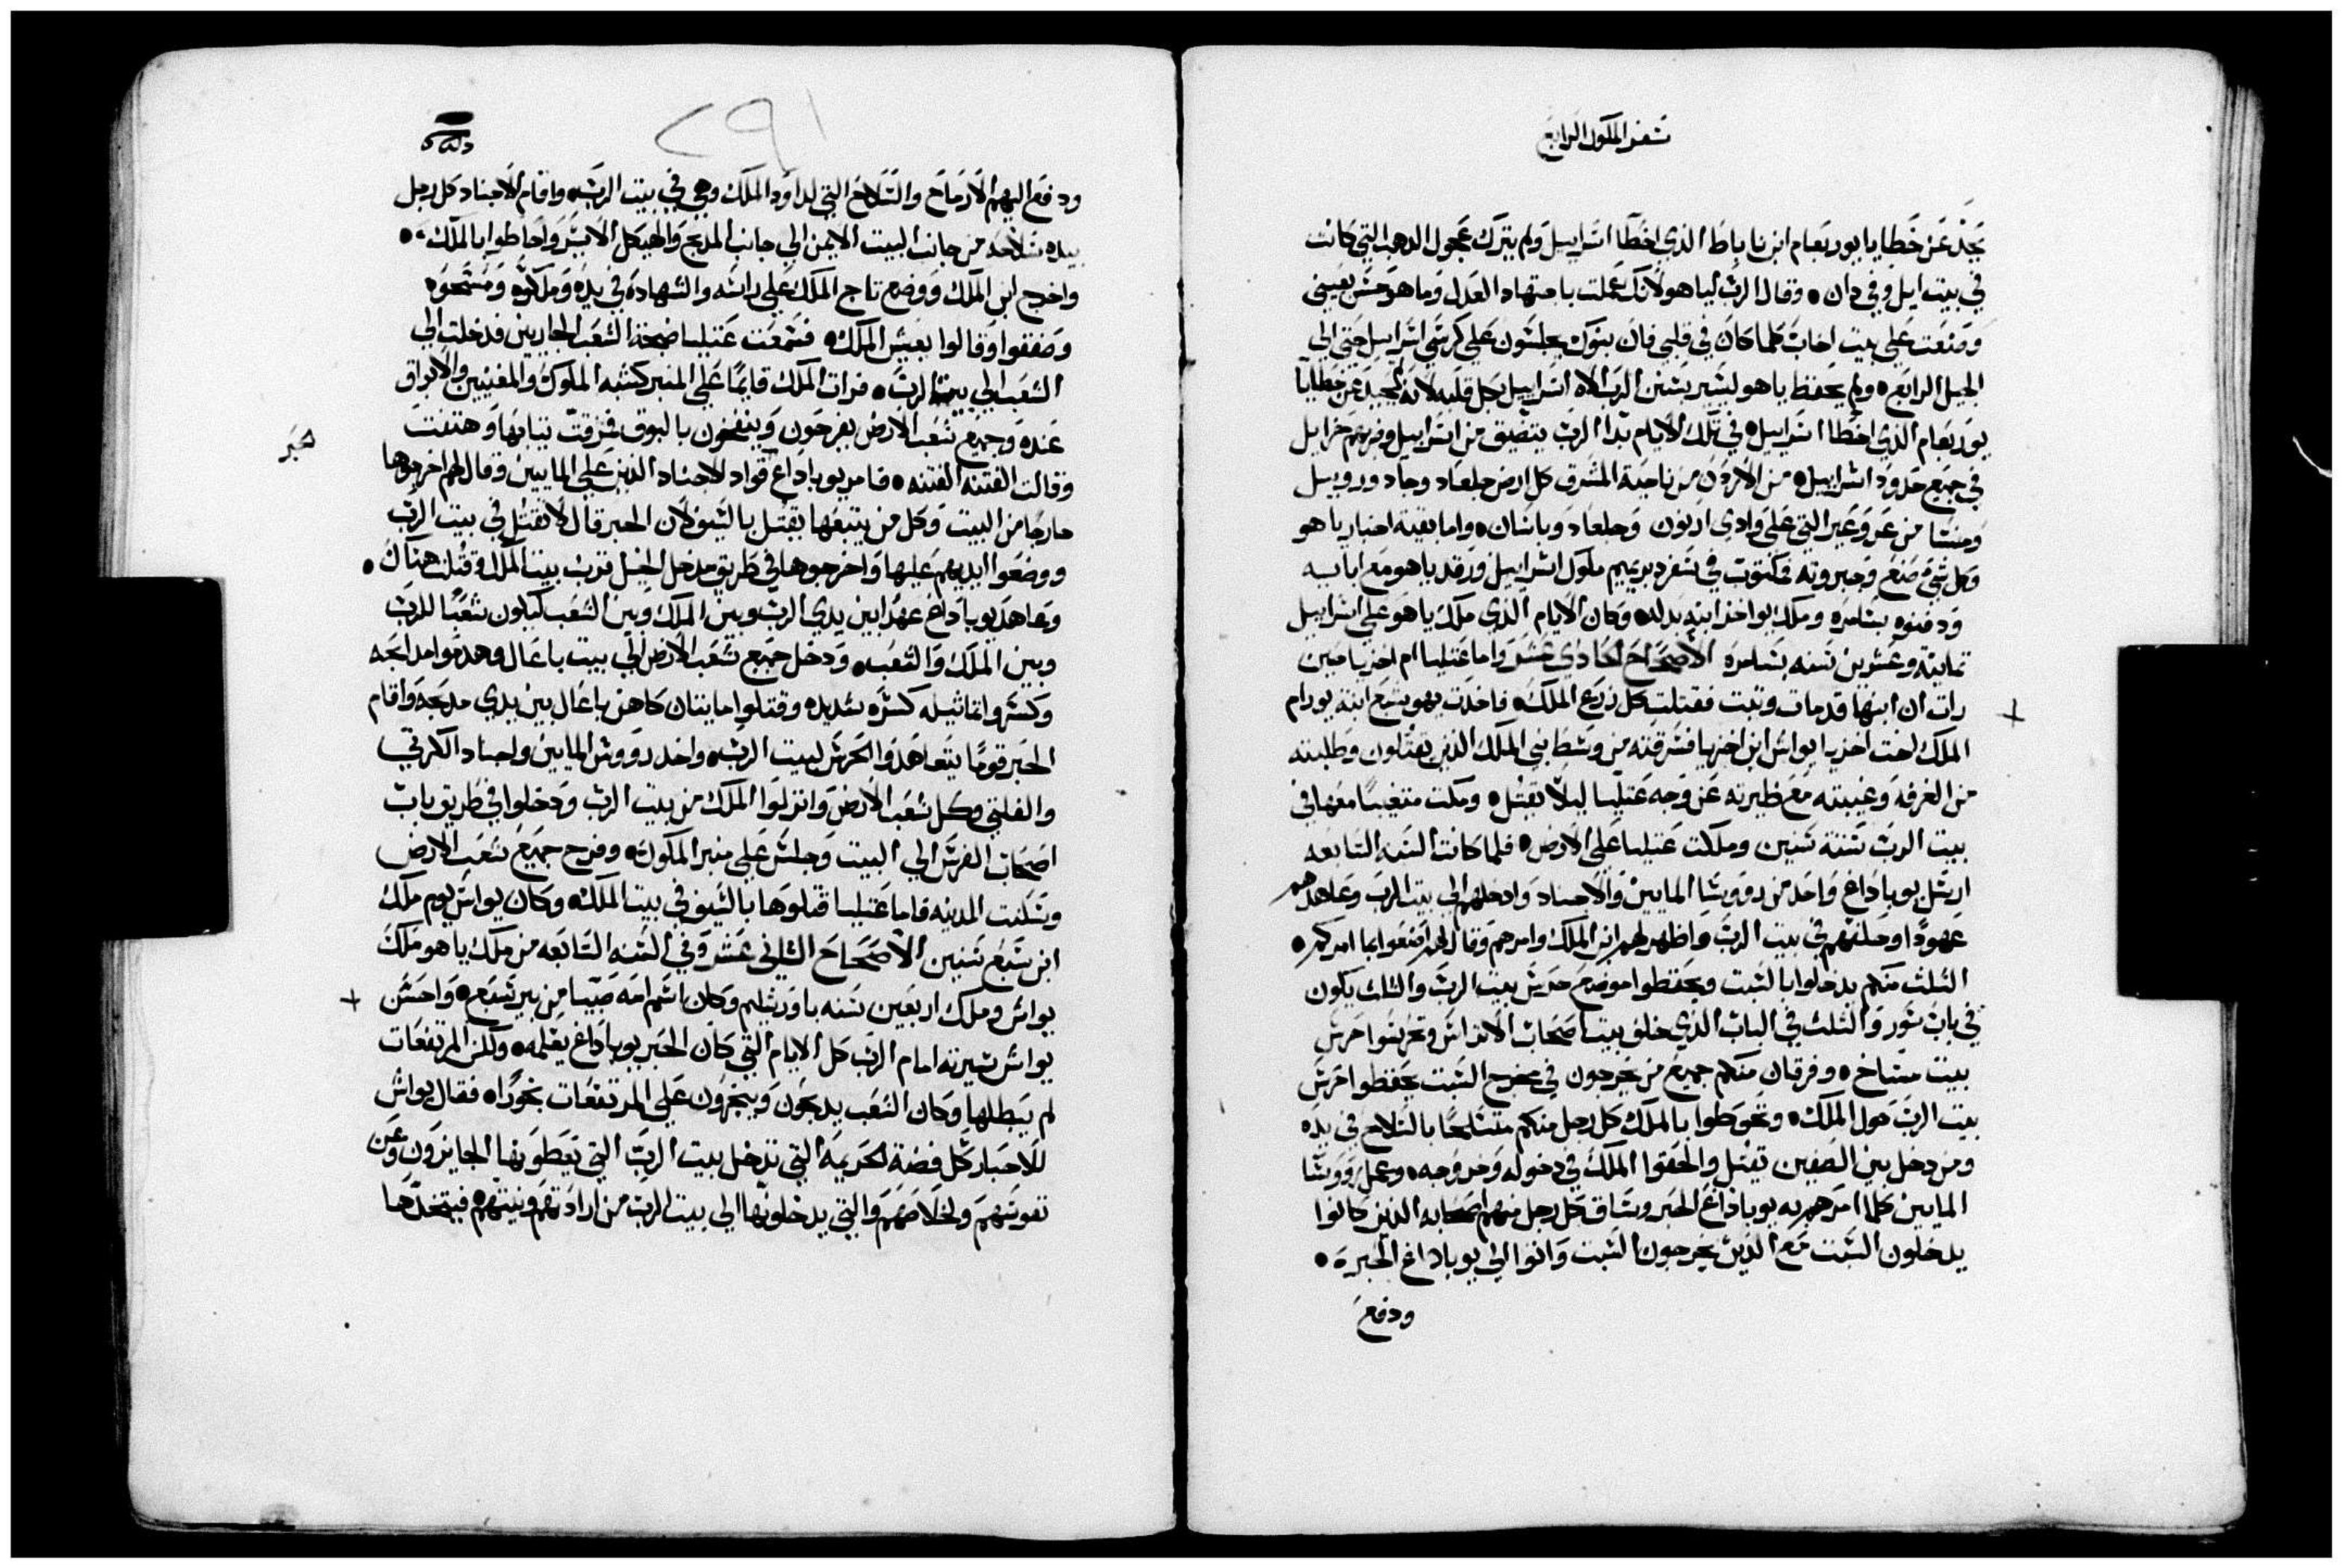 سفر الملوك الرابع
يحد عن خطايا يوربعام ابن ناباط الذي اخطا اسراييل ولم يترك عجول الدهب التي كانت
في بيت ايل وفي دان • وقال الرب لياهو لانك عملت باجتهاد العدل وما هو حسن بعيني
وصنعت علي بيت اخاب كلما كان في قلبي فان بنوك يجلسون علي كرسي اسراييل حتي الي
الجيل الرابع • ولم يحفظ ياهو ليسير بسنن الرب الاه اسراييل بكل قلبه لانه لم يحيد عن خطايا
يوربعام الذي اخطا اسراييل • في تلك الايام بدا الرب يتضيق من اسراييل وضربهم حزايل
في جميع حدود اسراييل • من الاردن من ناحية المشرق كل ارض جلعاد وجاد وروبيل
ومنشا من عروعير التي علي وادي ارنون وجلعاد وباسان • واما بقية اخبار ياهو
وكل شي صنع وجبروته مكتوب في سفر دبريميم ملوك اسراييل ورقد ياهو مع ابايه
ودفنوه بسامره وملك يواخز ابنه بدله • وكان الايام الذي ملك ياهو علي اسراييل
تمانية وعشرين سنه بسامره الاصحاح الحادي عشر واما عتليا ام اخزيا حين
رات ان ابنها قد مات وثبت فقتلت كل زرع الملك • فاخذت يهوشبع ابنة يورام
الملك اخت اخزيا يواش ابن اخزيا فسرقته من وسط بني الملك الذين يقتلون وطلبته
من الغرفه وغيبته مع ظيرته عن وجه عتليا ليلا يقتل • ومكت متغيبا معها في
بيت الرب ستة سنين وملكت عتليا علي الارض • فلما كانت السنه السابعه
ارسل يوياداع واخد من رووسا المايين والاجناد وادخلهم الي بيت الرب وعاهدهم
عهودا وحلفهم في بيت الرب واظهر لهم ابن الملك وامرهم وقال لهم اصنعوا بما امركم •
الثلث منكم يدخلوا بالسبت ويحفظوا موضع حرس بيت الرب والتلت يكون
في باب سور والثلث في الباب الذي خلف بيت اصحاب الاتراس وتحرسوا حرس
بيت مسّاخ • وفرقان منكم جميع من يخرجون في مخرج السبت يحفظوا حرس
بيت الرب حول الملك • وتحوطوا بالملك كل رجل منكم متسلحا بالسلاح في يده
ومن دخل بين الصفين تقتل والحقوا الملك في دخوله وخروجه • وعمل رووسا
المايين كلما امرهم به يوياداع الحبر وساق كل رجل منهم اصحابه الذين كانوا
يدخلون السبت مع الذين يخرجون السبت واتوا الي يوياداع الحبر •
ودفع
٢٩١
ودفع اليهم الارماح والسلاح التي لداود الملك وهي في بيت الرب • واقام الاجناد كل رجل
بيده سلاحه من جانب البيت الايمن الي جانب المدبح والهيكل الايسر واحاطوا بالملك •
واخرج ابن الملك ووضع تاج الملك علي راسه والشهادة في يده وملكوه ومسحوه
وصفقوا وقالوا يعيش الملك • فسمعت عتليا ضجة الشعب الجاريين فدخلت الي
الشعب الي بيت الرب • فرات الملك قايما علي المنبر كسنه الملوك والمغنيين والابواق
عنده وجميع شعب الارض يفرحون وينفخون بالبوق فزقت تيابها وهتفت
وقالت الفتنه الفتنه • فامر يوياداع قواد الاجناد الذين علي المايين وقال لهم اخرجوها
حبر
خارجا من البيت وكل من يتبعها يقتل بالسيف لان الحبر قال لا تقتل في بيت الرب
ووضعوا ايديهم عليها واخرجوها في طريق مدخل الخيل قرب بيت الملك وقتلت هناك •
وعاهد يوياداع عهدا بين يدي الرب وبين الملك وبين الشعب ليكون شعبا للرب
وبين الملك والشعب • ودخل جميع شعب الارض الي بيت باعال وهدموا مدابحه
وكسروا تماثيله كسره شديده وقتلوا مايتان كاهن باعال بين يدي مدبحه واقام
الحبر قوما يتعاهدوا الحرس لبيت الرب • واخد رووس المايين واجناد الكارتي
والفلتي وكل شعب الارض وانزلوا الملك من بيت الرب ودخلوا في طريق باب
اصحاب الفرس الي البيت وجلس علي منبر الملوك • وفرح جميع شعب الارض
وسكنت المدينه فاما عتليا قتلوها بالسيف في بيت الملك • وكان يواش يوم ملك
ابن سبع سنين الاصحاح الثاني عشر وفي السنه السابعه من ملك ياهو ملك
يواش وملك اربعين سنه باورشليم وكان اسم امه صبيا من بير شبع • واحسن
يواش سيرته امام الرب كل الايام التي كان الحبر يوياداع يعلمه • ولكن المرتفعات
لم يبطلها وكان الشعب يدبحون ويبخرون علي المرتفعات بخورا • فقال يواش
للاحبار كل فضة الحريمه التي تدخل بيت الرب التي يعطونها الجايزون وعن
نفوسهم ولخلاصهم والتي يدخلونها الي بيت الرب من ارادتهم ونيتهم • فيتخدها